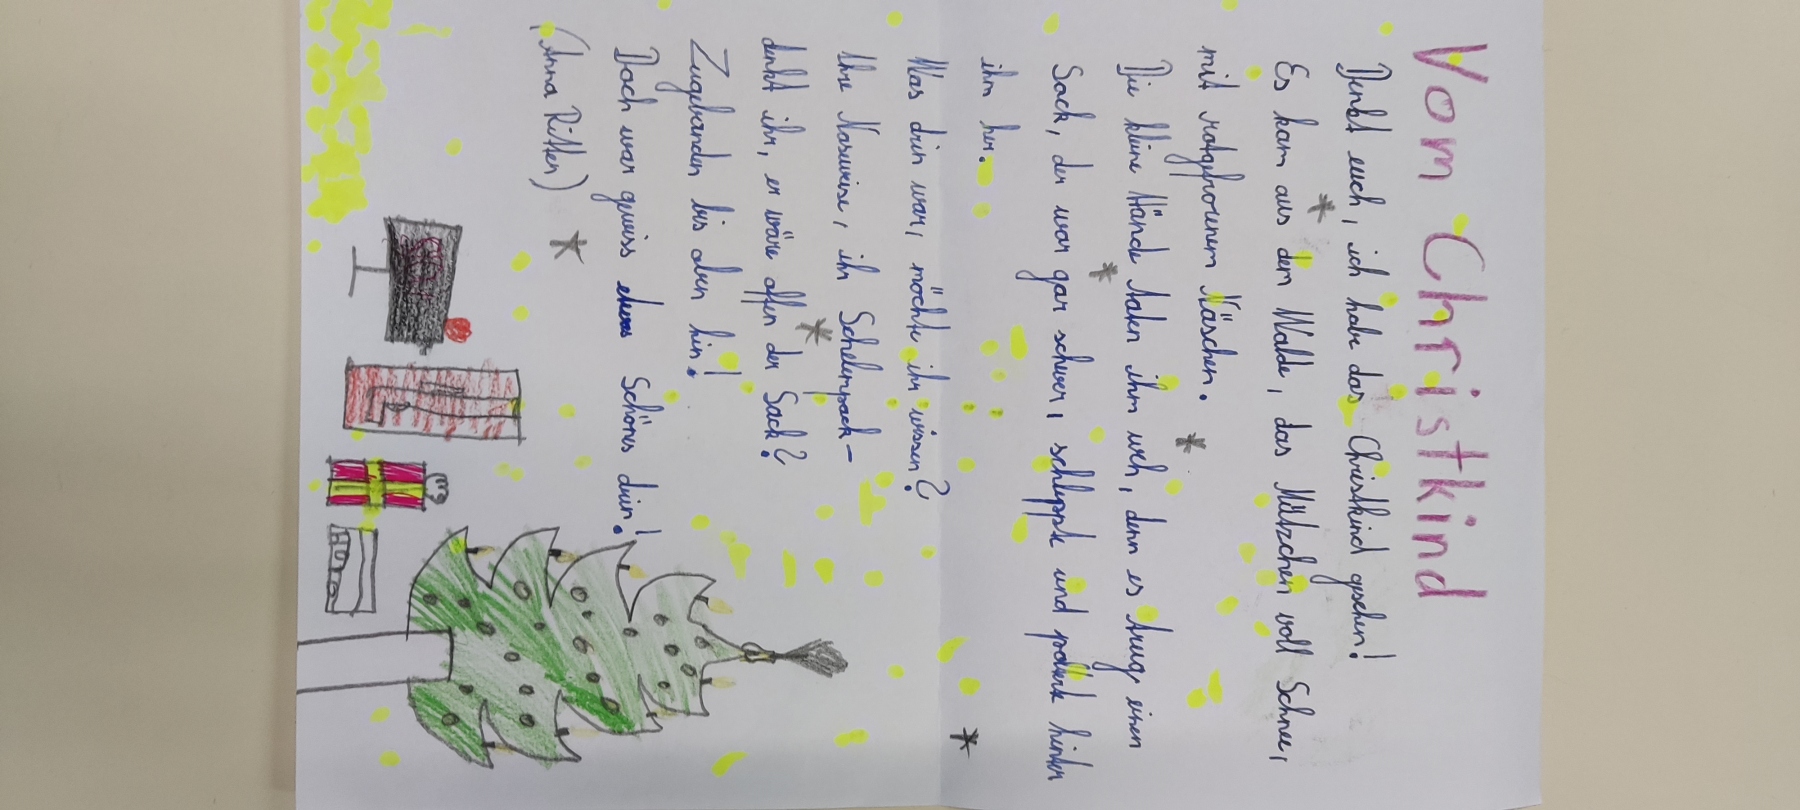 Vom Christkind
Denkt euch, ich habe das Christkind gesehen!
Es kam aus dem Walde, das Mützchen voll Schnee,
mit rotgefrorenem Näschen.
Die kleine Hände taten ihm weh, denn es trug einen
Sack, der war gar schwer, schleppte und polterte hinter
ihm her.
Was drin war, möchte ihr wissen?
Ihr Naseweise, ihr Schelmpack-
denkt ihr, er wäre offen der Sack?
Zugebunden bis oben hin!
Doch war gewiss etwas Schönes drin!
(Anna Ritter)